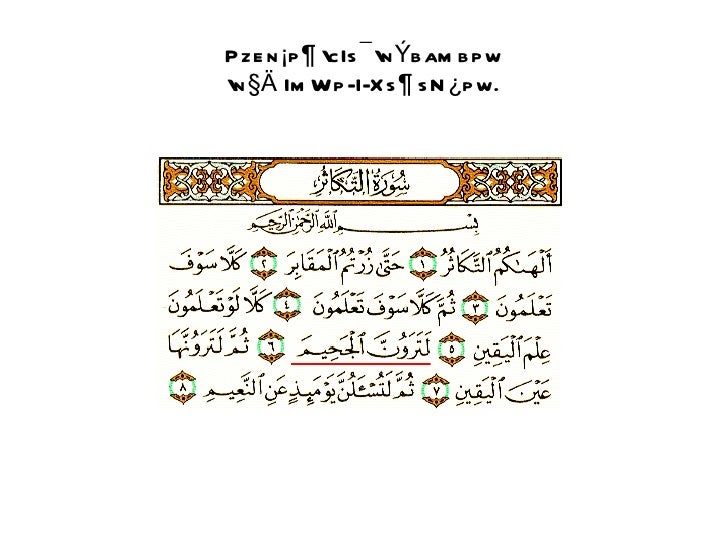 Pzen¡p¶ \cIs¯ \nÝbambpw
\n§Ä ImWp-I-Xs¶ sN¿pw.
سُورَةُ التَّكَاثُرِ
بِسْمِ اللَّهِ الرَّحْمَٰنِ الرَّحِيمِ
أَلْهَىٰكُمُ ٱلتَّكَاثُرُ ١ حَتَّىٰ زُرْتُمُ ٱلْمَقَابِرَ ٢ كَلَّا سَوْفَ
تَعْلَمُونَ ٣ ثُمَّ كَلَّا سَوْفَ تَعْلَمُونَ ٤ كَلَّا لَوْ تَعْلَمُونَ
عِلْمَ ٱلْيَقِينِ ٥ لَتَرَوُنَّ ٱلْجَحِيمَ ٦ ثُمَّ لَتَرَوُنَّهَا
عَيْنَ ٱلْيَقِينِ ٧ ثُمَّ لَتُسْـَٔلُنَّ يَوْمَئِذٍ عَنِ ٱلنَّعِيمِ ٨